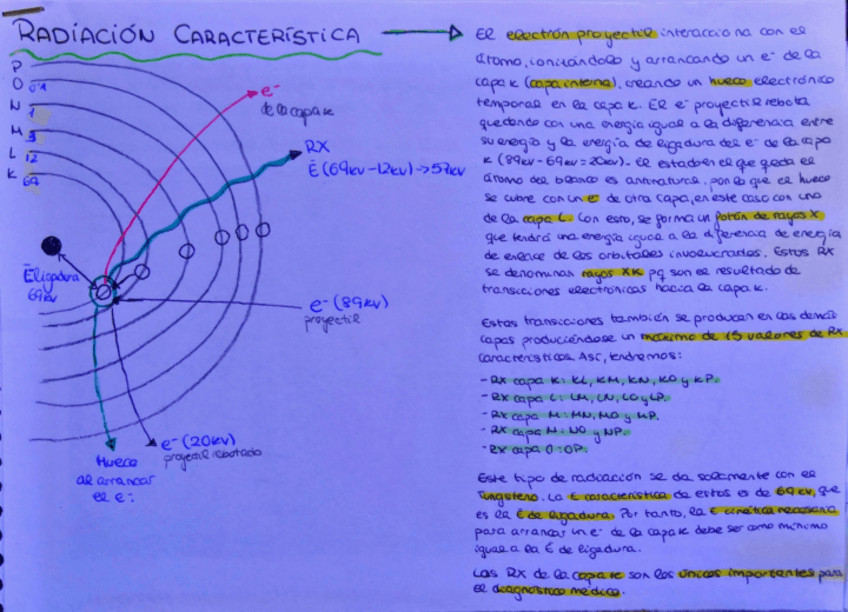 RADIACIÓN CARACTERÍSTICA
P
O 0'1
N 1
M 3
L 12
K 69
e-
de la capa K
RX
Ē (69kv - 12kv) → 57kv
Ēligadura
69kv
e- (89kv)
proyectil
e- (20kv)
proyectil rebotado
Hueco
al arrancar
el e-
El electrón proyectil interacciona con el
átomo, ionizándolo y arrancando un e- de la
capa K (capa interna), creando un hueco electrónico
temporal en la capa K. El e- proyectil rebota
quedando con una energía igual a la diferencia entre
su energía y la energía de ligadura del e- de la capa
K (89kv - 69kv = 20kv). El estado en el que queda el
átomo del blanco es antinatural, por lo que el hueco
se cubre con un e- de otra capa, en este caso con uno
de la capa L. Con esto, se forma un fotón de rayos X
que tendrá una energía igual a la diferencia de energía
de enlace de los orbitales involucrados. Estos RX
se denominan rayos XK pq son el resultado de
transiciones electrónicas hacia la capa K.
Estas transiciones también se producen en las demás
capas produciéndose un máximo de 15 valores de RX
característicos. Así, tendremos:
- RX capa K: KL, KM, KN, KO y KP.
- RX capa L: LM, LN, LO y LP.
- RX capa M: MN, MO y MP.
- RX capa N: NO y NP.
- RX capa O: OP.
Este tipo de radiación se da solamente con el
Tungsteno. La E característica de estos es de 69 kv, que
es la E de ligadura. Por tanto, la E cinética necesaria
para arrancar un e- de la capa K debe ser como mínimo
igual a la E de ligadura.
Los RX de la capa K son los únicos importantes para
el diagnóstico médico.